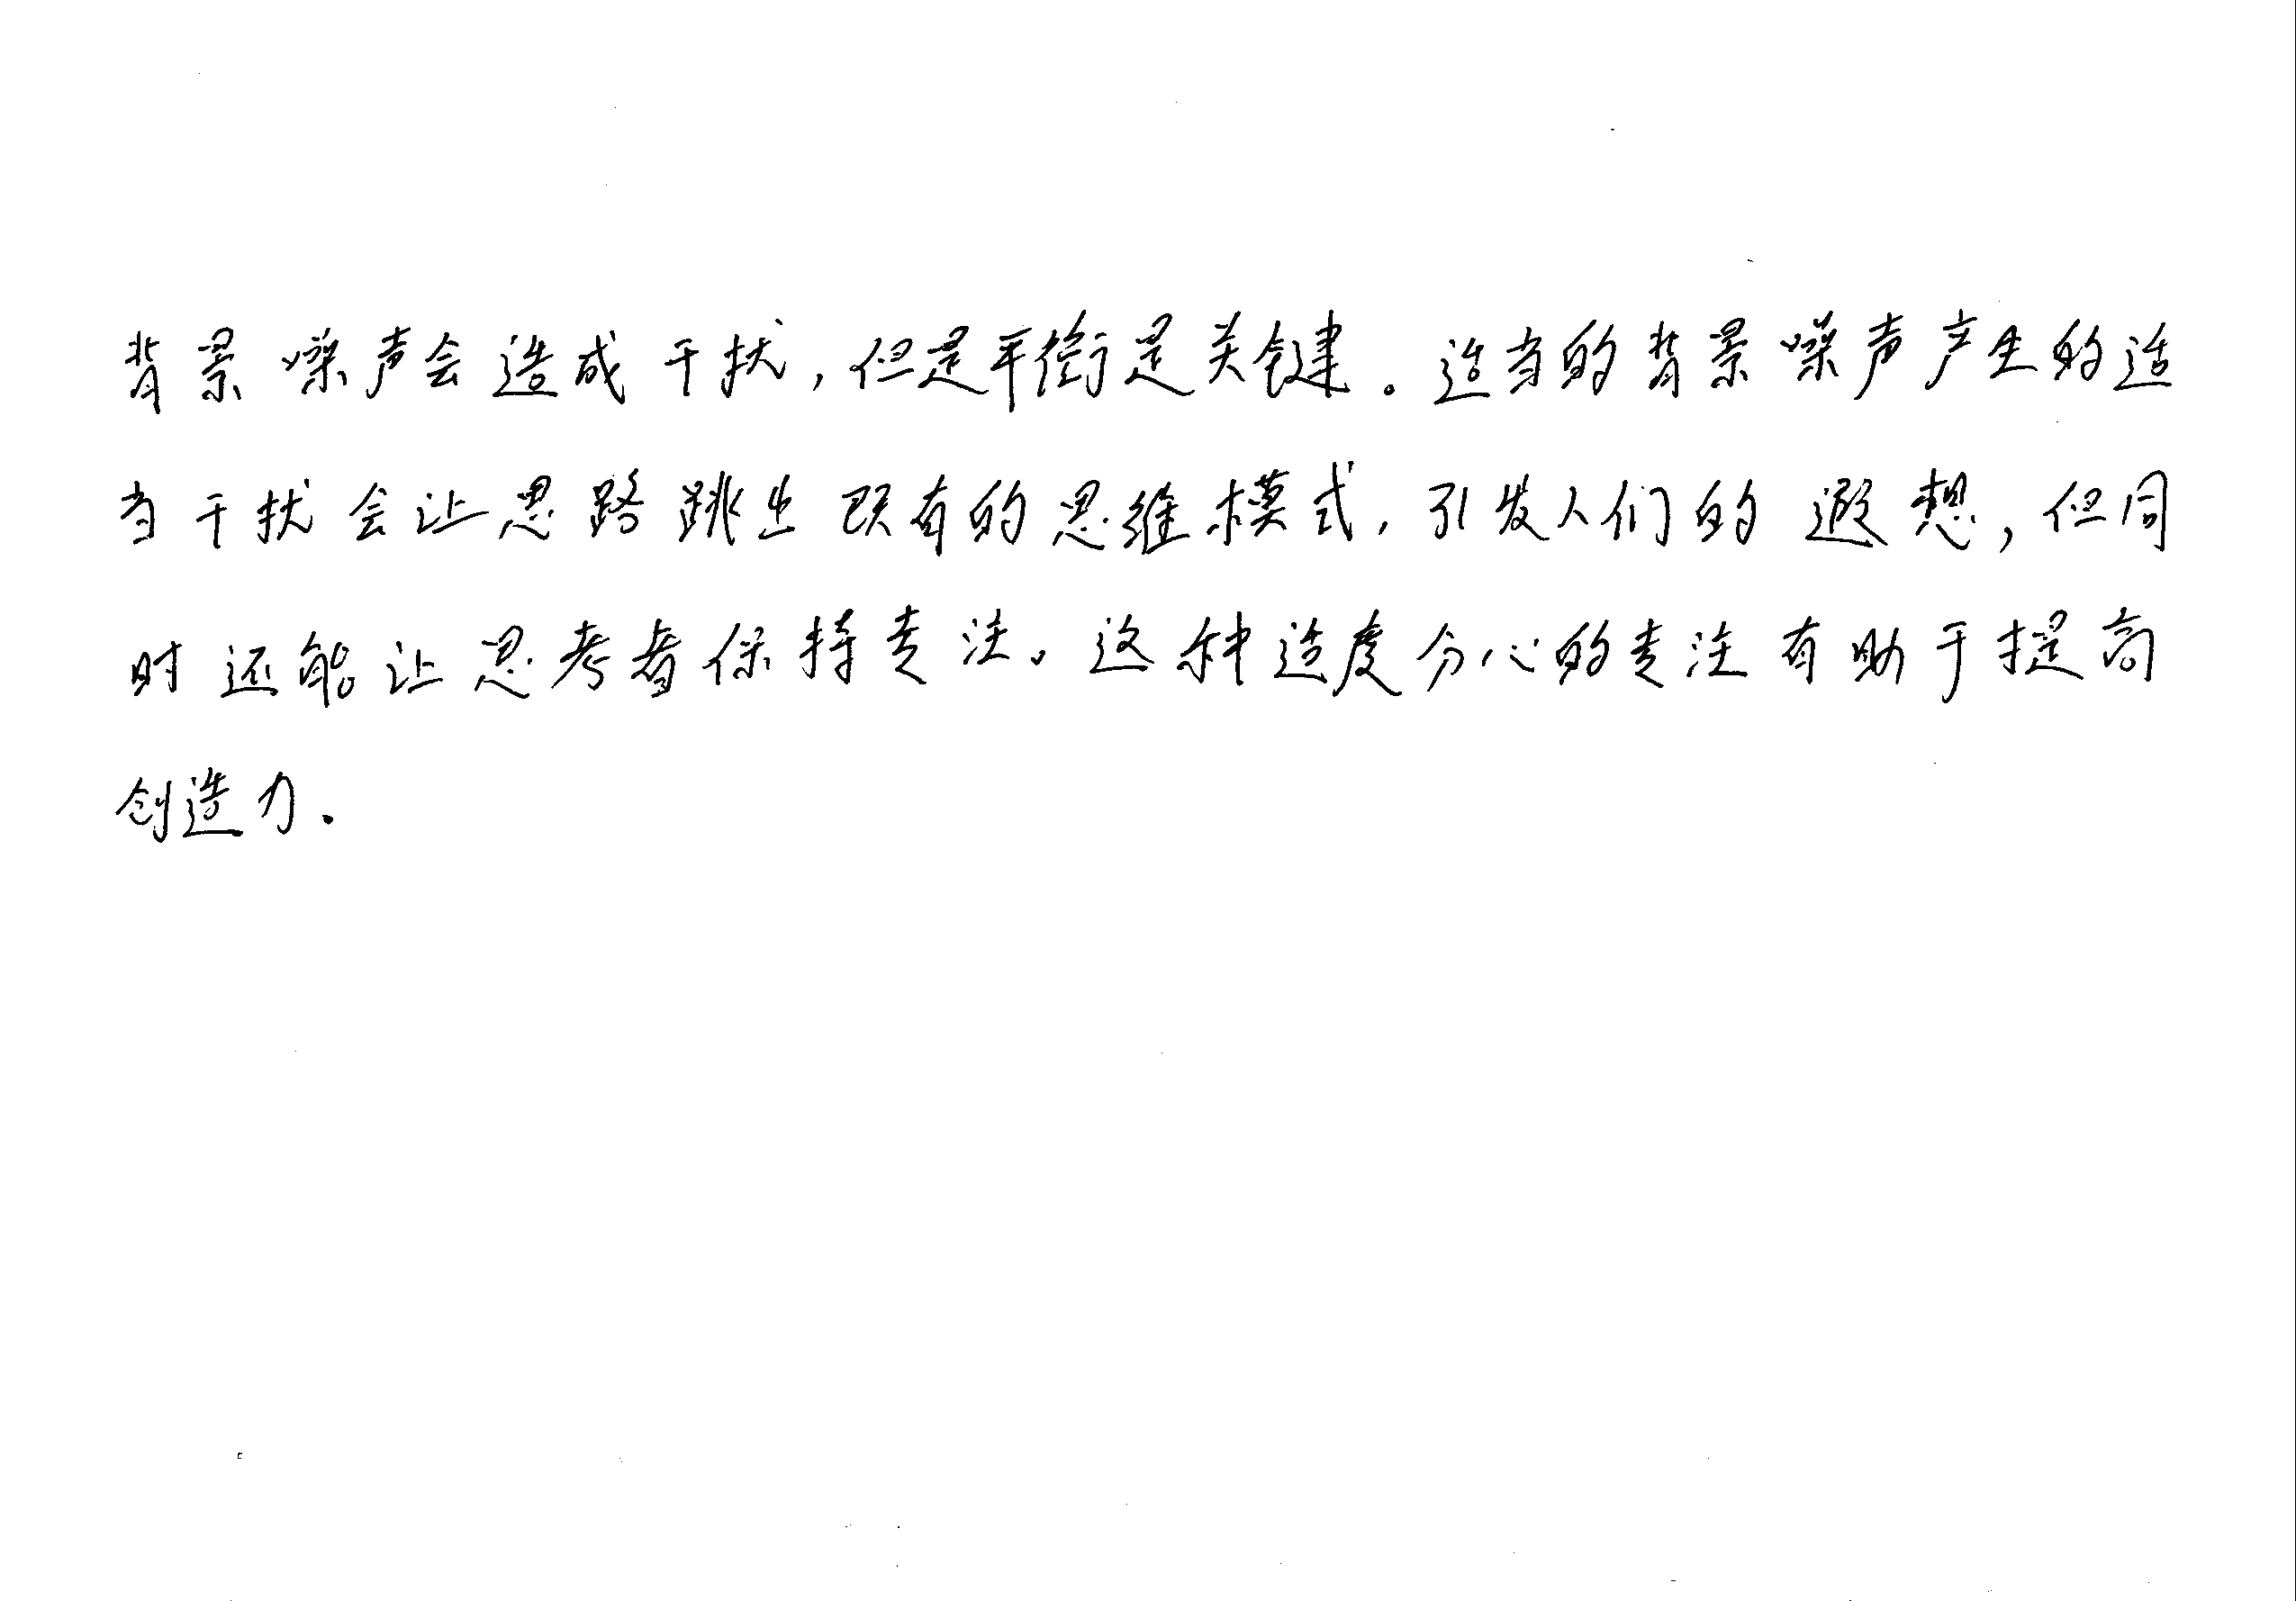 背景噪声会造成干扰,但是平衡是关键。适当的背景噪声产生的适
当干扰会让思路跳出既有的思维模式,引发人们的遐想,但同
时还能让思考者保持专注。这种适度分心的专注有助于提高
创造力.